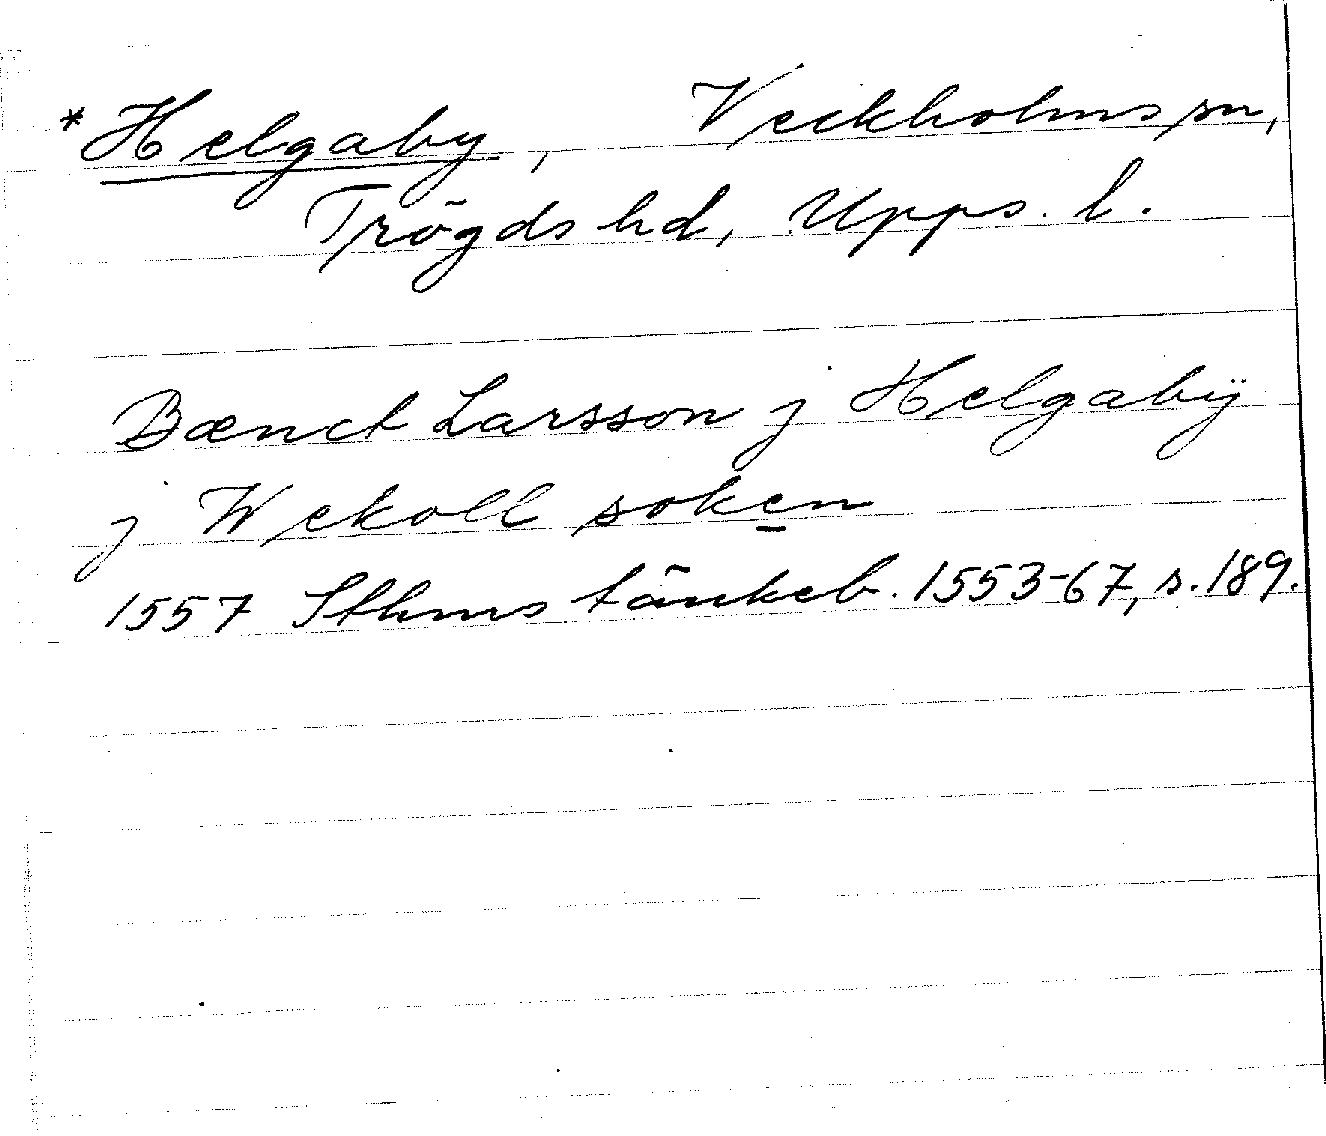 *Helgaby, Veckholms sn,
Trögds hd, Upps. l.
Bænct Larsson j Helgabÿ
j Wekoll soken
1557 Sthms tänkeb. 1553-67, s. 189.